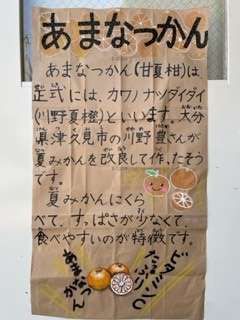 あまなつかん
あまなつかん(甘夏柑)は
正式には、カワノナツダイダイ
(川野夏橙)といいます。大分
県津久見市の川野豊さんが
夏みかんを改良して作ったそう
です。
夏みかんにくら
べて、すっぱさが少なくて、
食べやすいのが特徴です。
ビタミンC
たっぷり
あまなつかん